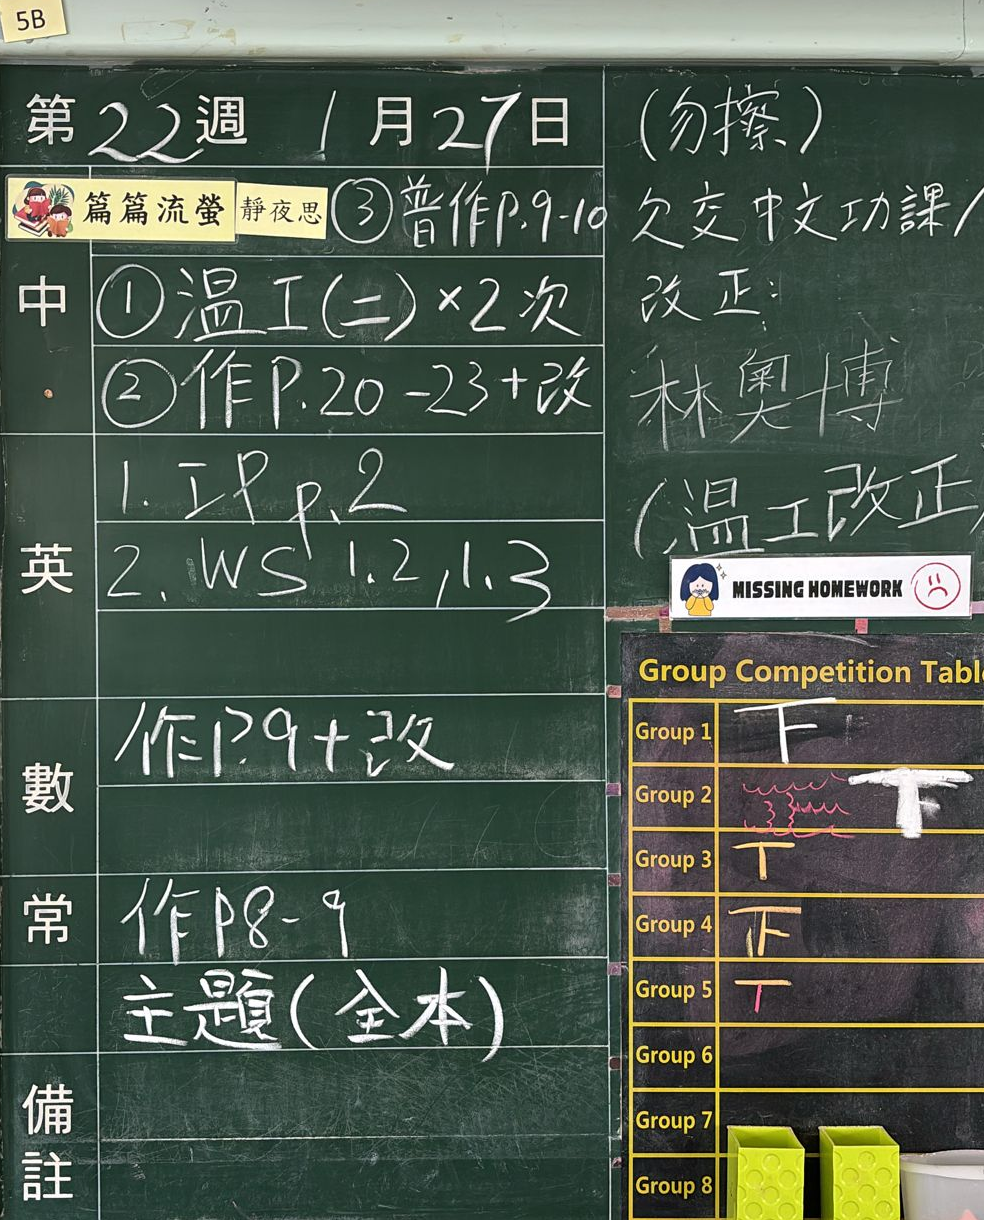 5B
第22週 1月27日
篇篇流螢 靜夜思 ③普作P.9-10
中
①溫工(二)×2次
②作P.20-23+改
英
1. IP p.2
2. WS 1.2, 1.3
數
作P.9+改
常
作P8-9
主題(全本)
備註
(勿擦)
欠交中文功課/
改正:
林奧博
(溫工改正)
MISSING HOMEWORK
Group Competition Table
Group 1 下
Group 2 下
Group 3 T
Group 4 正
Group 5 T
Group 6
Group 7
Group 8